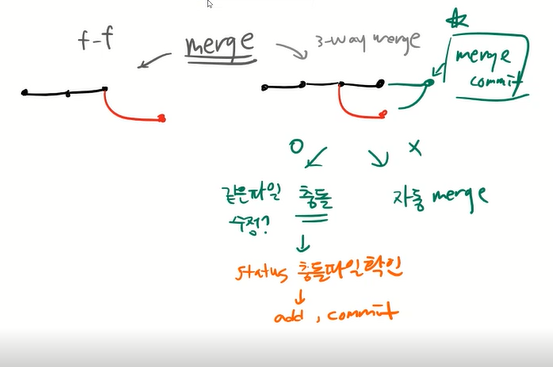 f-f
merge
3-way merge
merge
commit
O
X
같은파일
수정?
충돌
자동 merge
status 충돌파일확인
add, commit